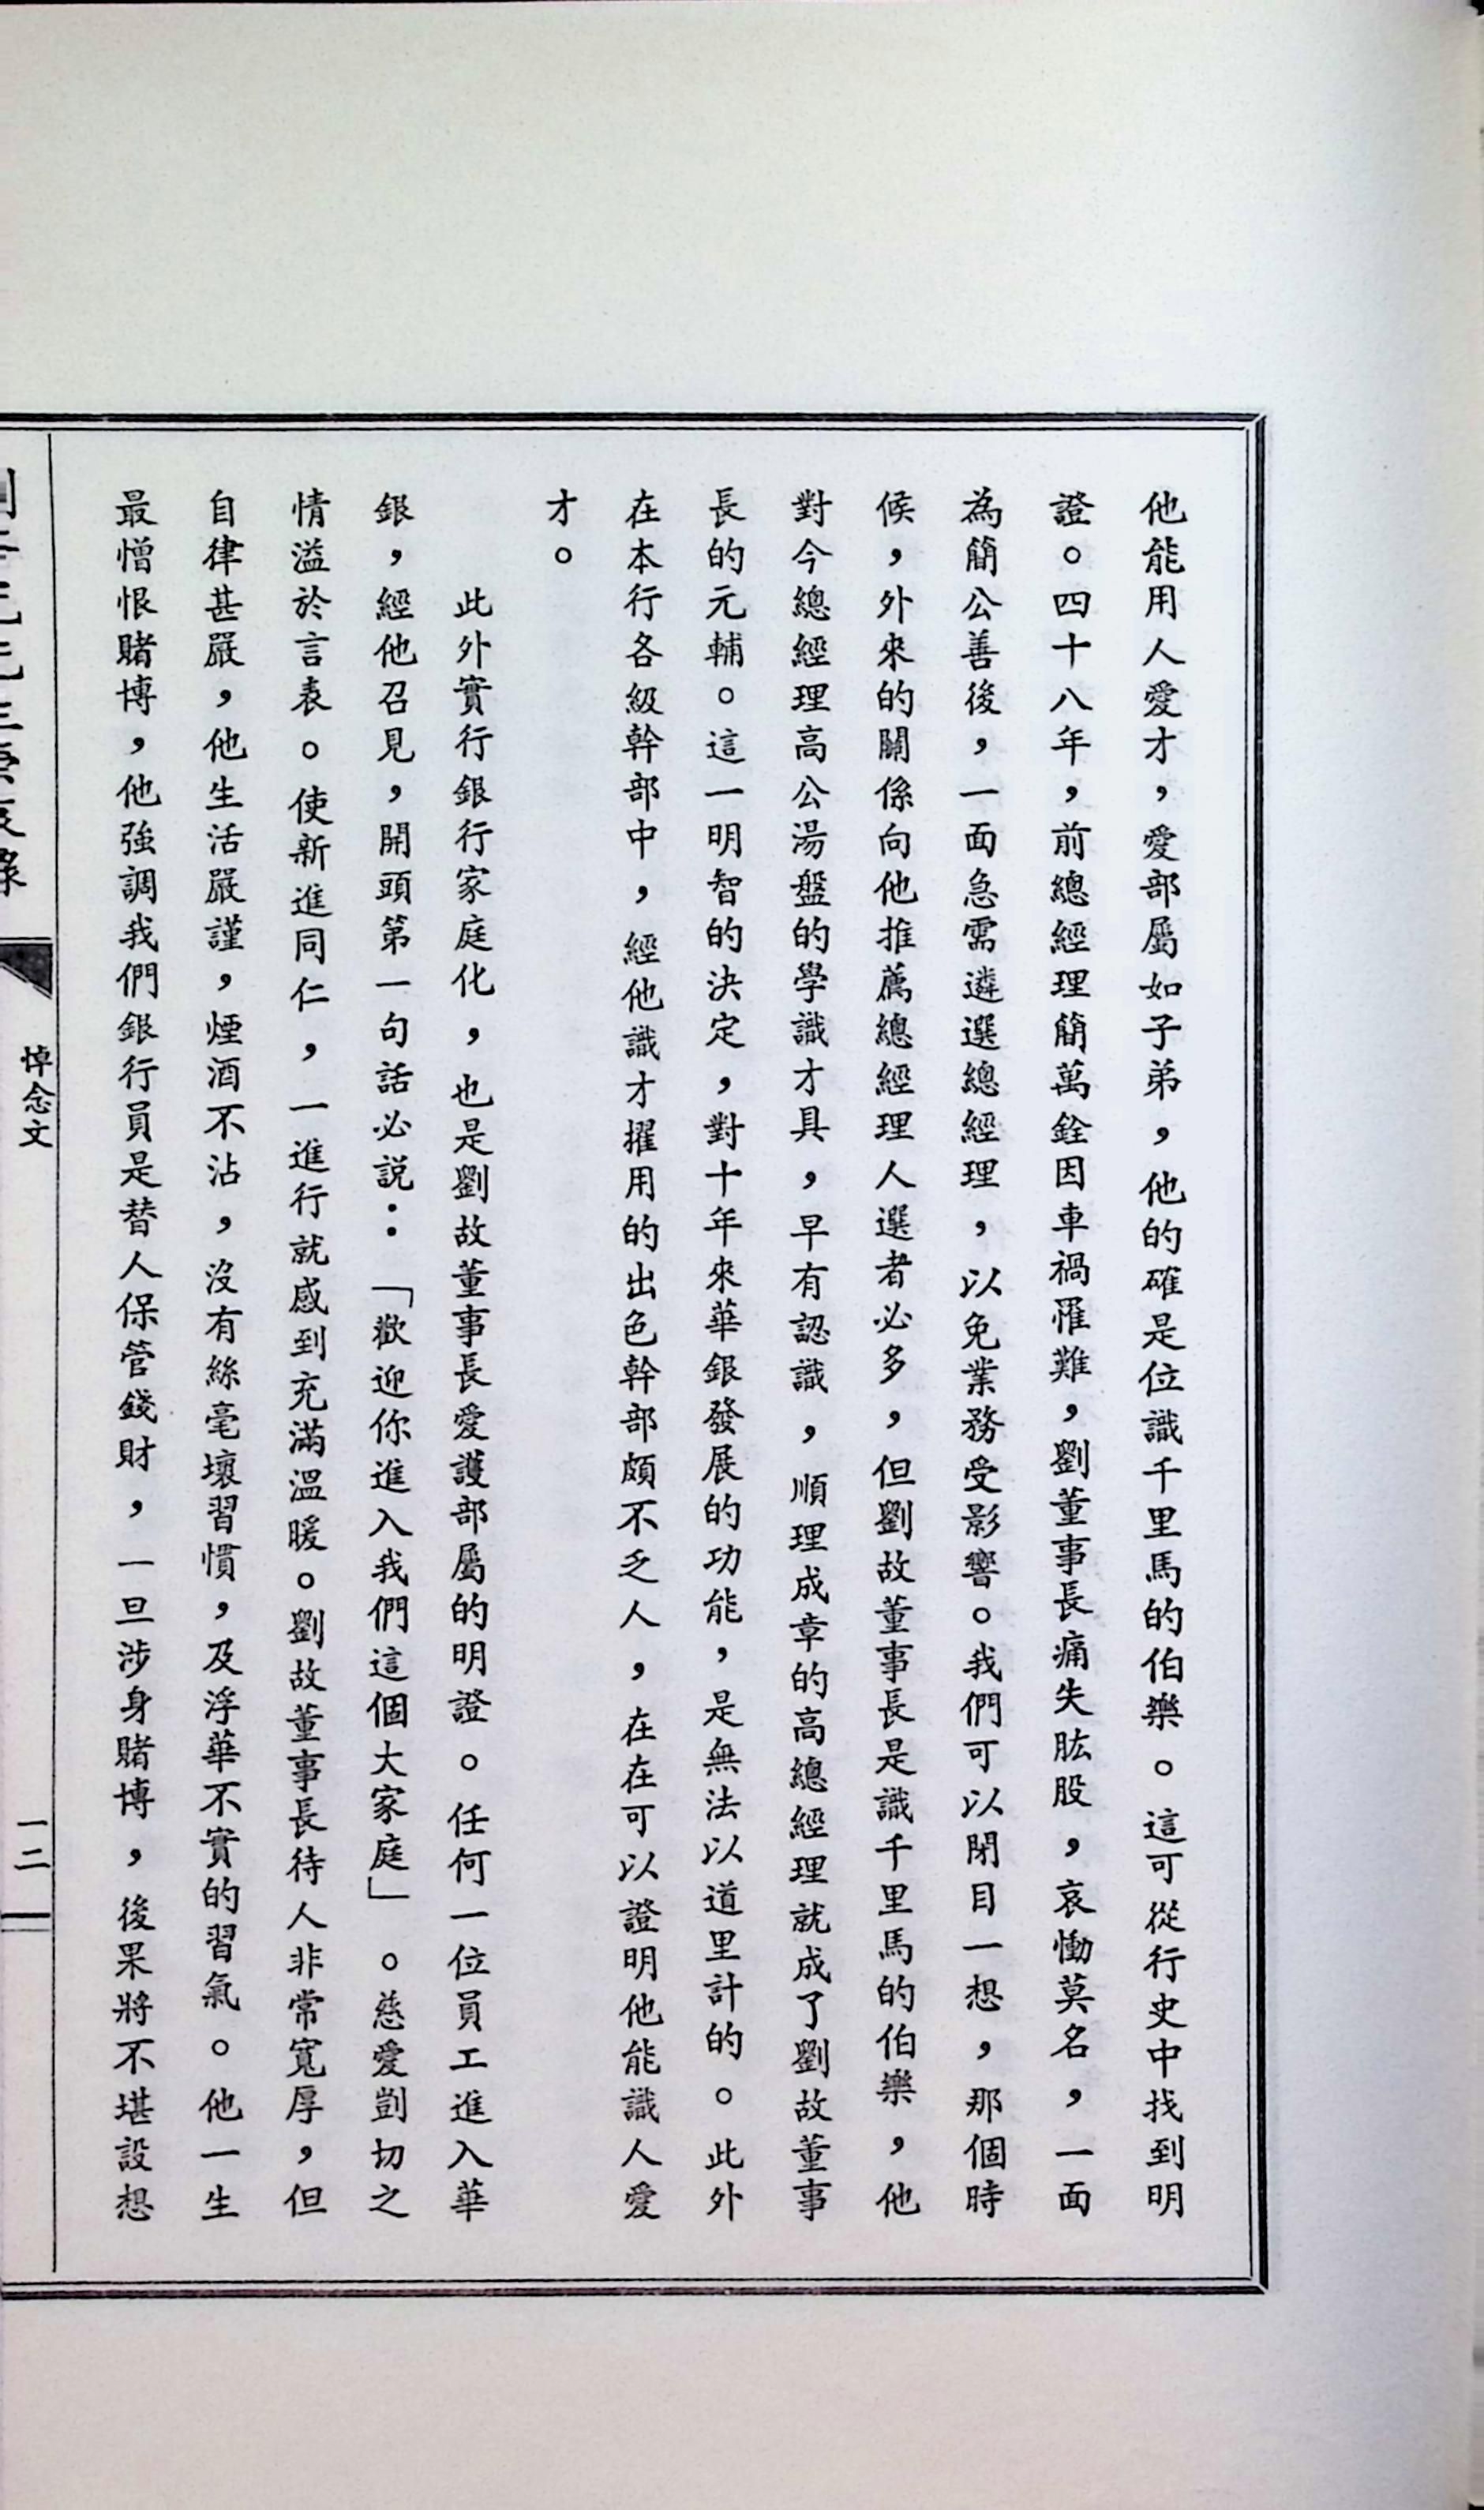 他能用人愛才，愛部屬如子弟，他的確是位識千里馬的伯樂。這可從行史中找到明
證。四十八年，前總經理簡萬銓因車禍罹難，劉董事長痛失肱股，哀慟莫名，一面
為簡公善後，一面急需遴選總經理，以免業務受影響。我們可以閉目一想，那個時
候，外來的關係向他推薦總經理人選者必多，但劉故董事長是識千里馬的伯樂，他
對今總經理高公湯盤的學識才具，早有認識，順理成章的高總經理就成了劉故董事
長的元輔。這一明智的決定，對十年來華銀發展的功能，是無法以道里計的。此外
在本行各級幹部中，經他識才擢用的出色幹部頗不乏人，在在可以證明他能識人愛
才。
此外實行銀行家庭化，也是劉故董事長愛護部屬的明證。任何一位員工進入華
銀，經他召見，開頭第一句話必説：「歡迎你進入我們這個大家庭」。慈愛剴切之
情溢於言表。使新進同仁，一進行就感到充滿溫暖。劉故董事長待人非常寬厚，但
自律甚嚴，他生活嚴謹，煙酒不沾，沒有絲毫壞習慣，及浮華不實的習氣。他一生
最憎恨賭博，他強調我們銀行員是替人保管錢財，一旦涉身賭博，後果將不堪設想
悼念文
一二